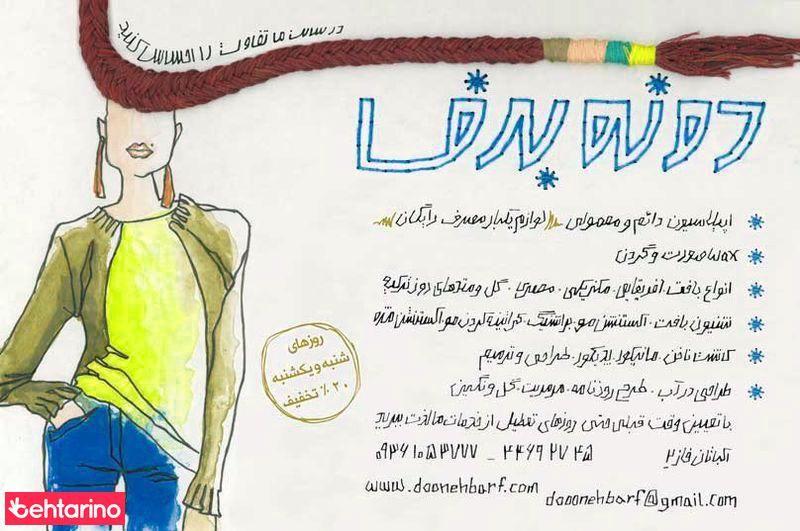 در سالن ما تفاوت را احساس کنید
دونه برف
اپیلاسیون دائم و معمولی (لوازم یکبار مصرف رایگان)
wax صورت و گردن
انواع بافت آفریقایی . مکزیکی . مصری . گل و متدهای روز ترکیه
شنیون بافت . اکستنشن مو . براشینگ . کراتینه کردن مو . اکستنشن مژه
کاشت ناخن . مانیکور . پدیکور . طراحی و ترمیم
طراحی در آب . طرح روزنامه . مرمریت . گل و نگین
با تعیین وقت قبلی حتی روزهای تعطیل از خدمات ما لذت ببرید
روزهای
شنبه و یکشنبه
۲۰٪ تخفیف
اکباتان فاز ۲
۰۹۳۶۱۰۵۳۷۷۷ - ۴۴۶۹۲۷۴۵
www.doonehbarf.com
dooonehbarf@gmail.com
behtarino